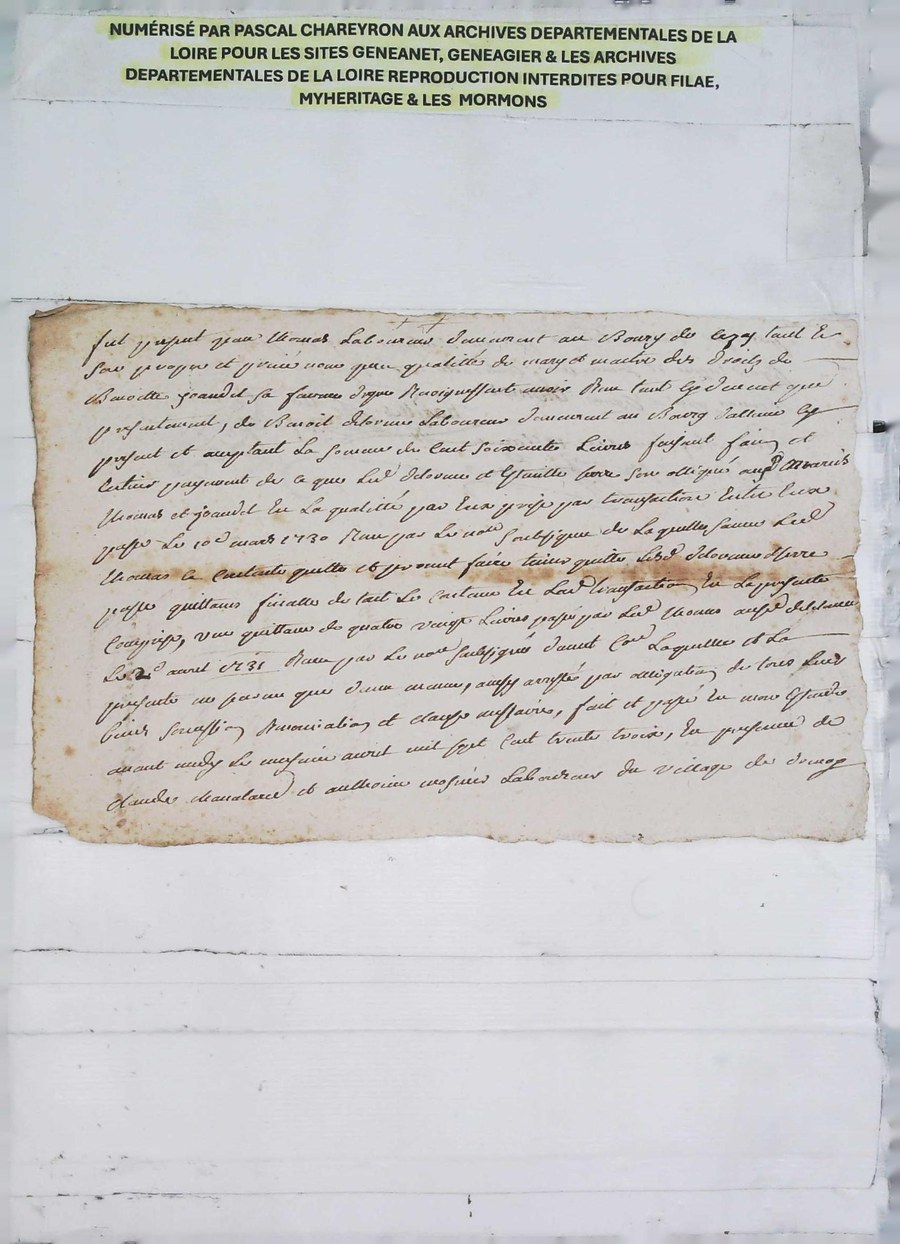 NUMÉRISÉ PAR PASCAL CHAREYRON AUX ARCHIVES DEPARTEMENTALES DE LA
LOIRE POUR LES SITES GENEANET, GENEAGIER & LES ARCHIVES
DEPARTEMENTALES DE LA LOIRE REPRODUCTION INTERDITES POUR FILAE,
MYHERITAGE & LES MORMONS
fut present jean thomas Laboureur demeurant au Bourg de tant en
Son propre et privé nom que qualitté de mary et maitre des droits de
Benoitte joandel sa femme lequel avoir Receu tant cy devant que
presentement, de Benoit delorme Laboureur demeurant au Bourg icy
present et acceptant La somme de Cent Soixante Livres faisant fain et
Entier payement de ce que Led delorme et Son obligés auxd mariés
thomas et joandel En La qualitté par Eux prise par transaction Entre Eux
passé Le 10e mars 1730 Receu par Le nore Soubsigné de Laquelle somme Led
thomas Se Contente quitte et promet faire tenir quitte Led delorme
passe quittance finalle de tout Le Contenu En Lad transaction En La presente
Comprise, une quittance de quatre vingt Livres passé par Led thomas aud delorme
Le 2e avril 1731 Receu par Le nore Soubsigné Laquelle et La
presente ne servant que d'une mesme, par obligation de tous Leurs
biens Soumission Renonciation et clauses necessaires, fait et passé En mon Estude
avant midy Le avril mil sept Cent trente trois, En presence de
claude et anthoine Laboureurs du village de